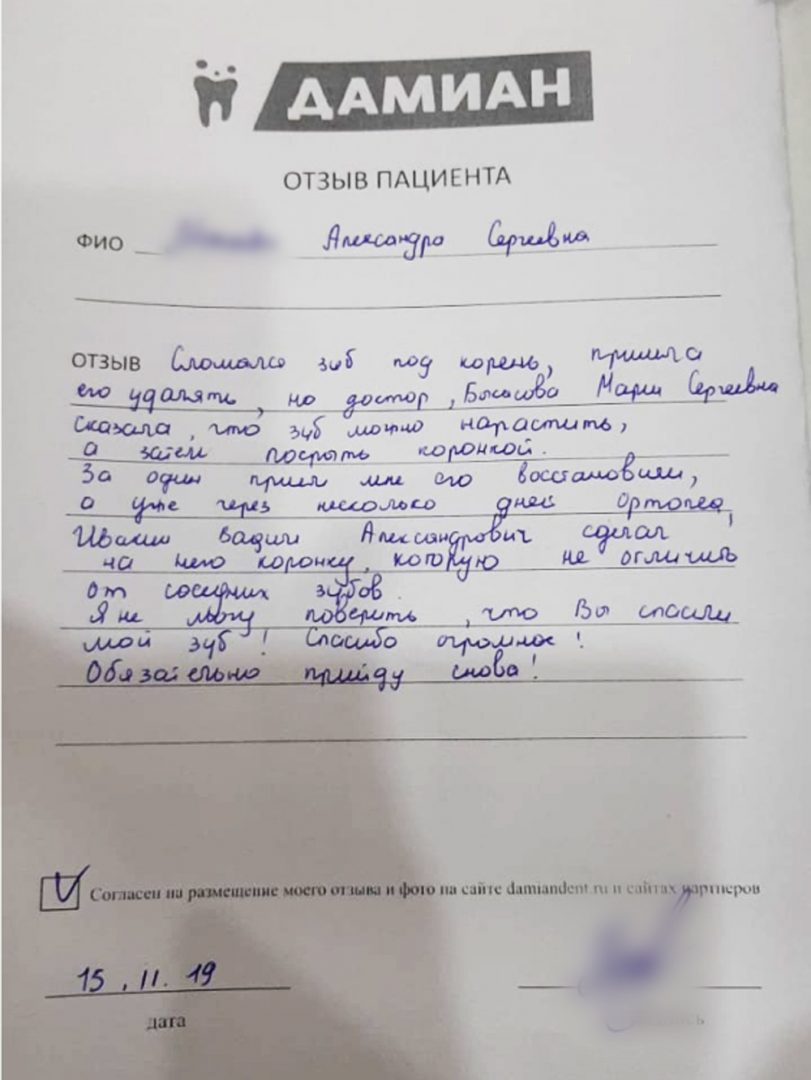 ДАМИАН
ОТЗЫВ ПАЦИЕНТА
ФИО Александра Сергеевна
ОТЗЫВ Сломался зуб под корень, пришла
его удалять, но доктор, Мария Сергеевна
сказала, что зуб можно нарастить,
а затем покрыть коронкой.
За один прием мне его восстановили,
а уже через несколько дней ортопед,
Вадим Александрович сделал
на него коронку, которую не отличить
от соседних зубов.
Я не могу поверить, что Вы спасли
мой зуб! Спасибо огромное!
Обязательно прийду снова!
Согласен на размещение моего отзыва и фото на сайте damiandent.ru и сайтах партнеров
15.11.19
дата